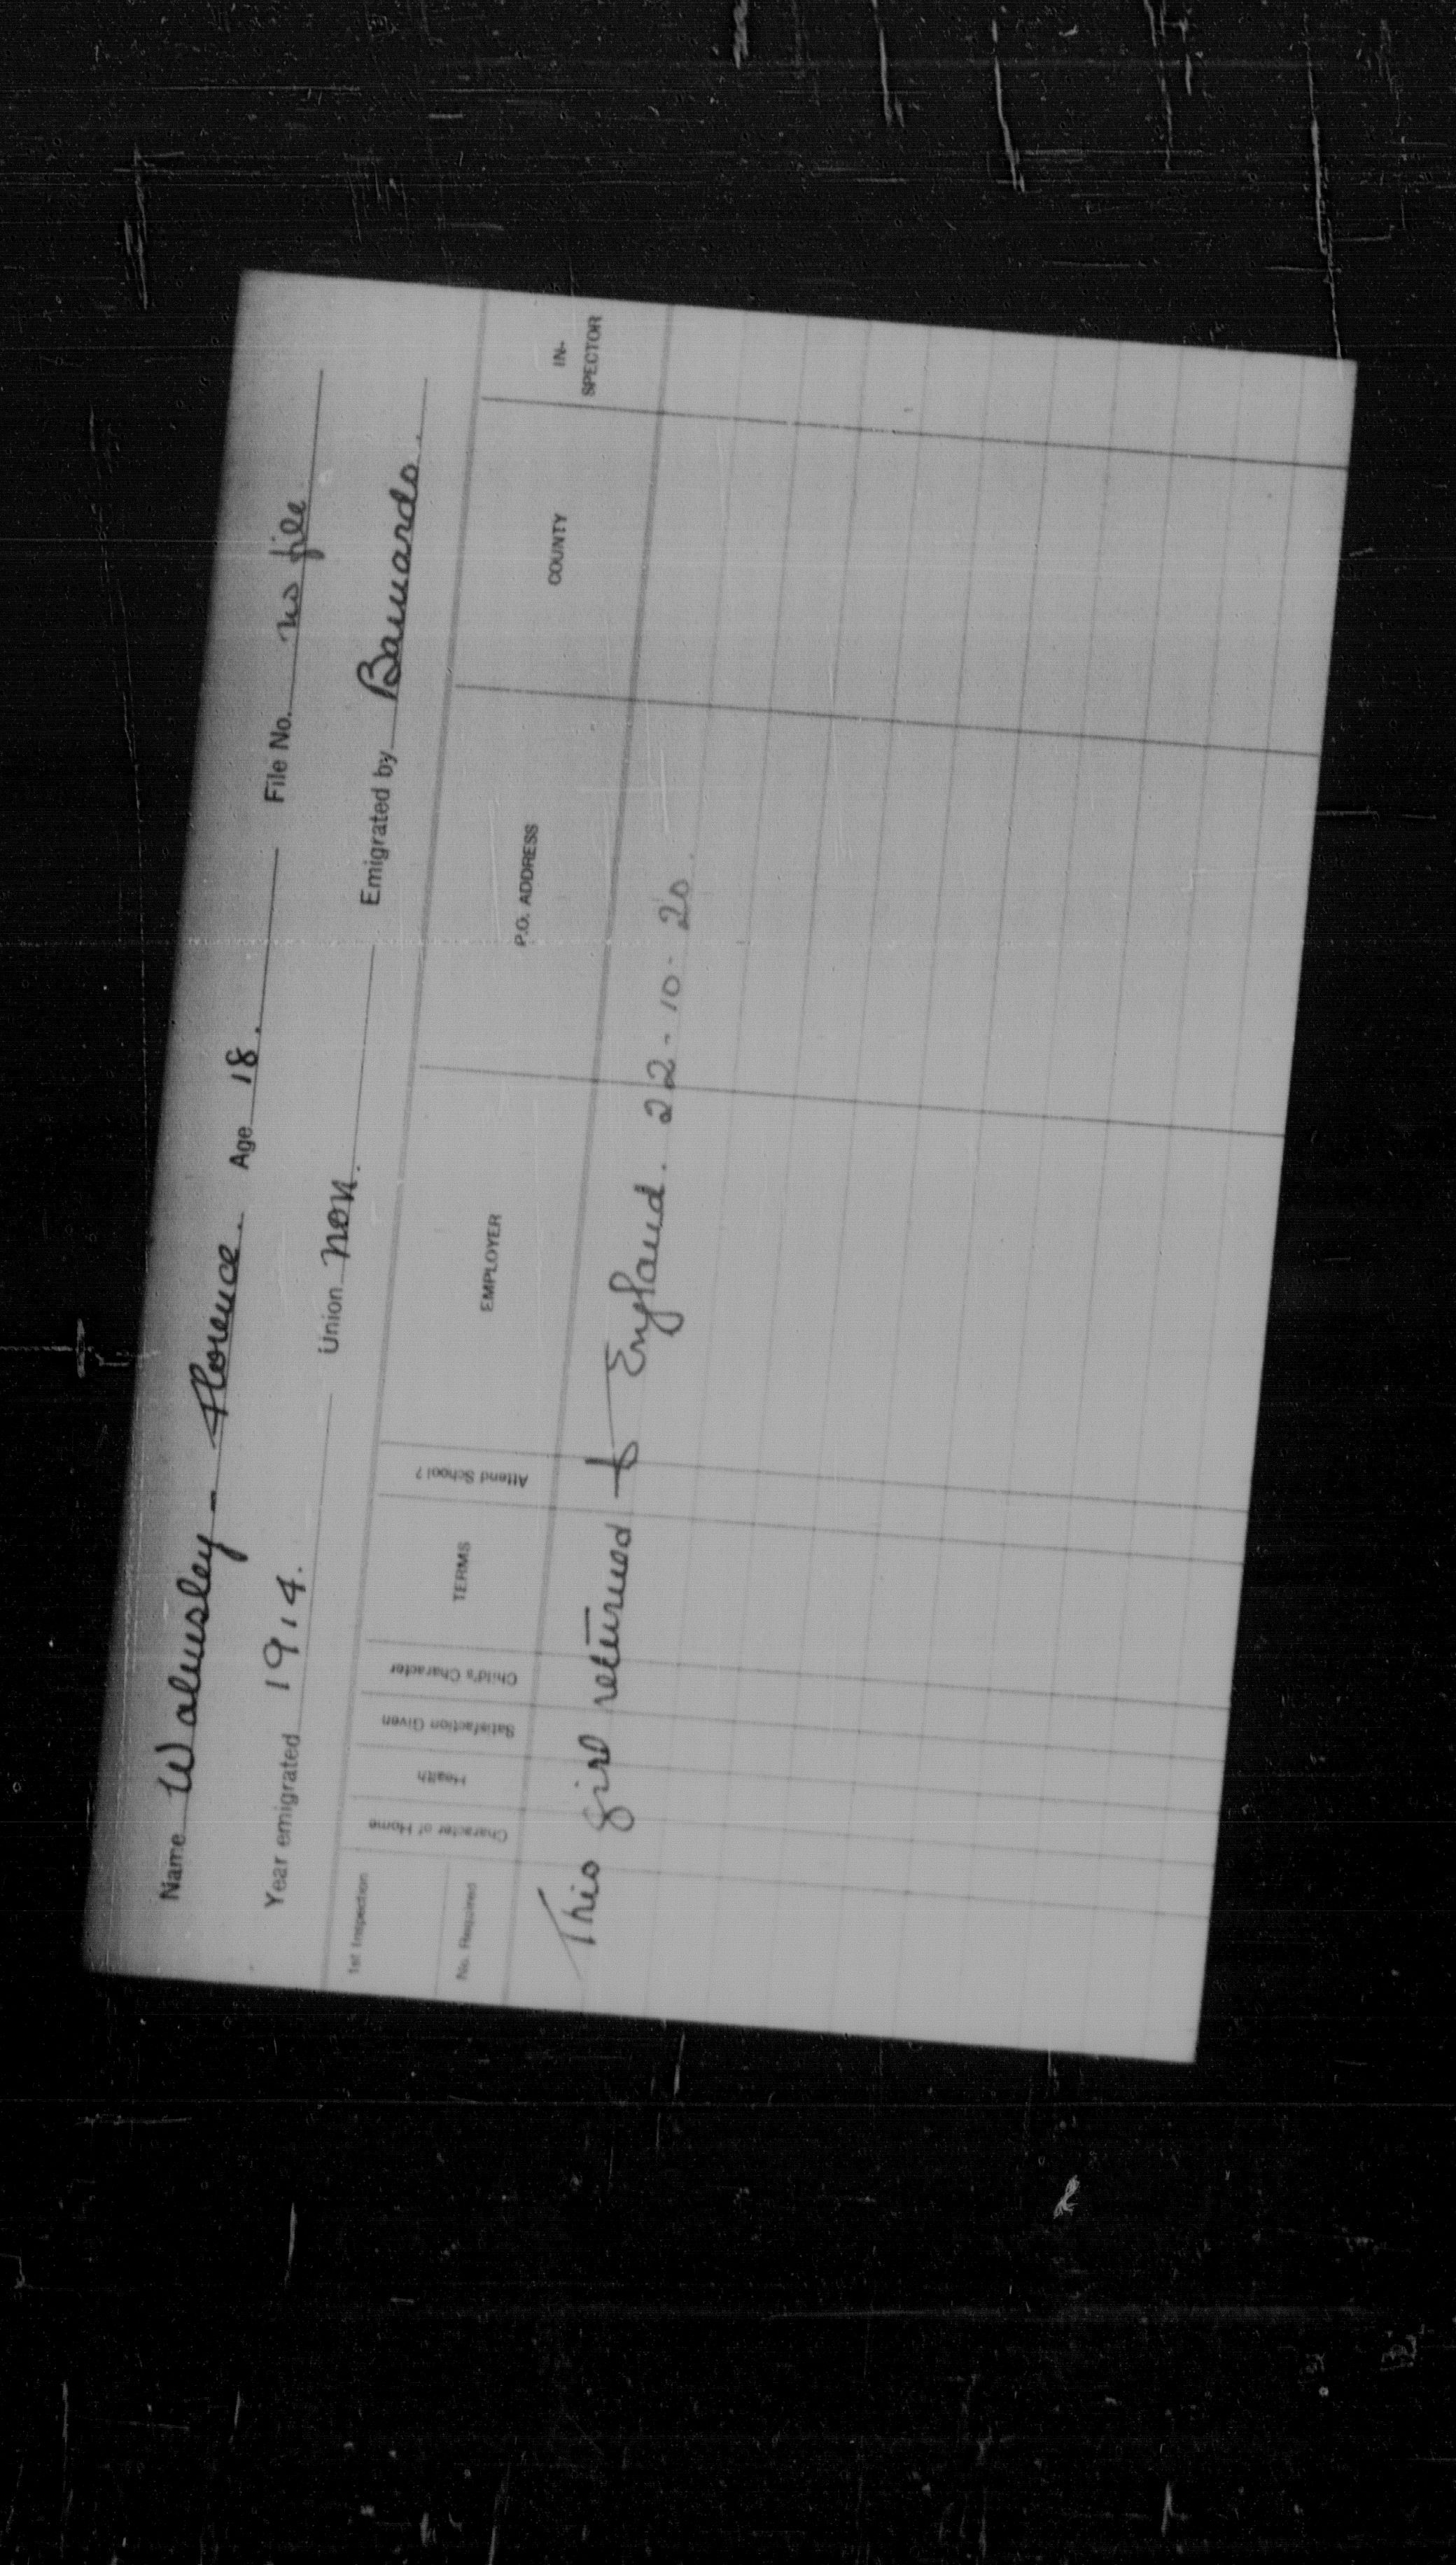 Name Walmsley - Florence. Age 18. File No. no file
Year emigrated 1914. Union non. Emigrated by Barnardo.
1st Inspection
No. Required
Character of Home
Health
Satisfaction Given
Child's Character
TERMS
Attend School?
EMPLOYER
P.O. ADDRESS
COUNTY
IN-
SPECTOR
This girl returned to England. 22-10-20.